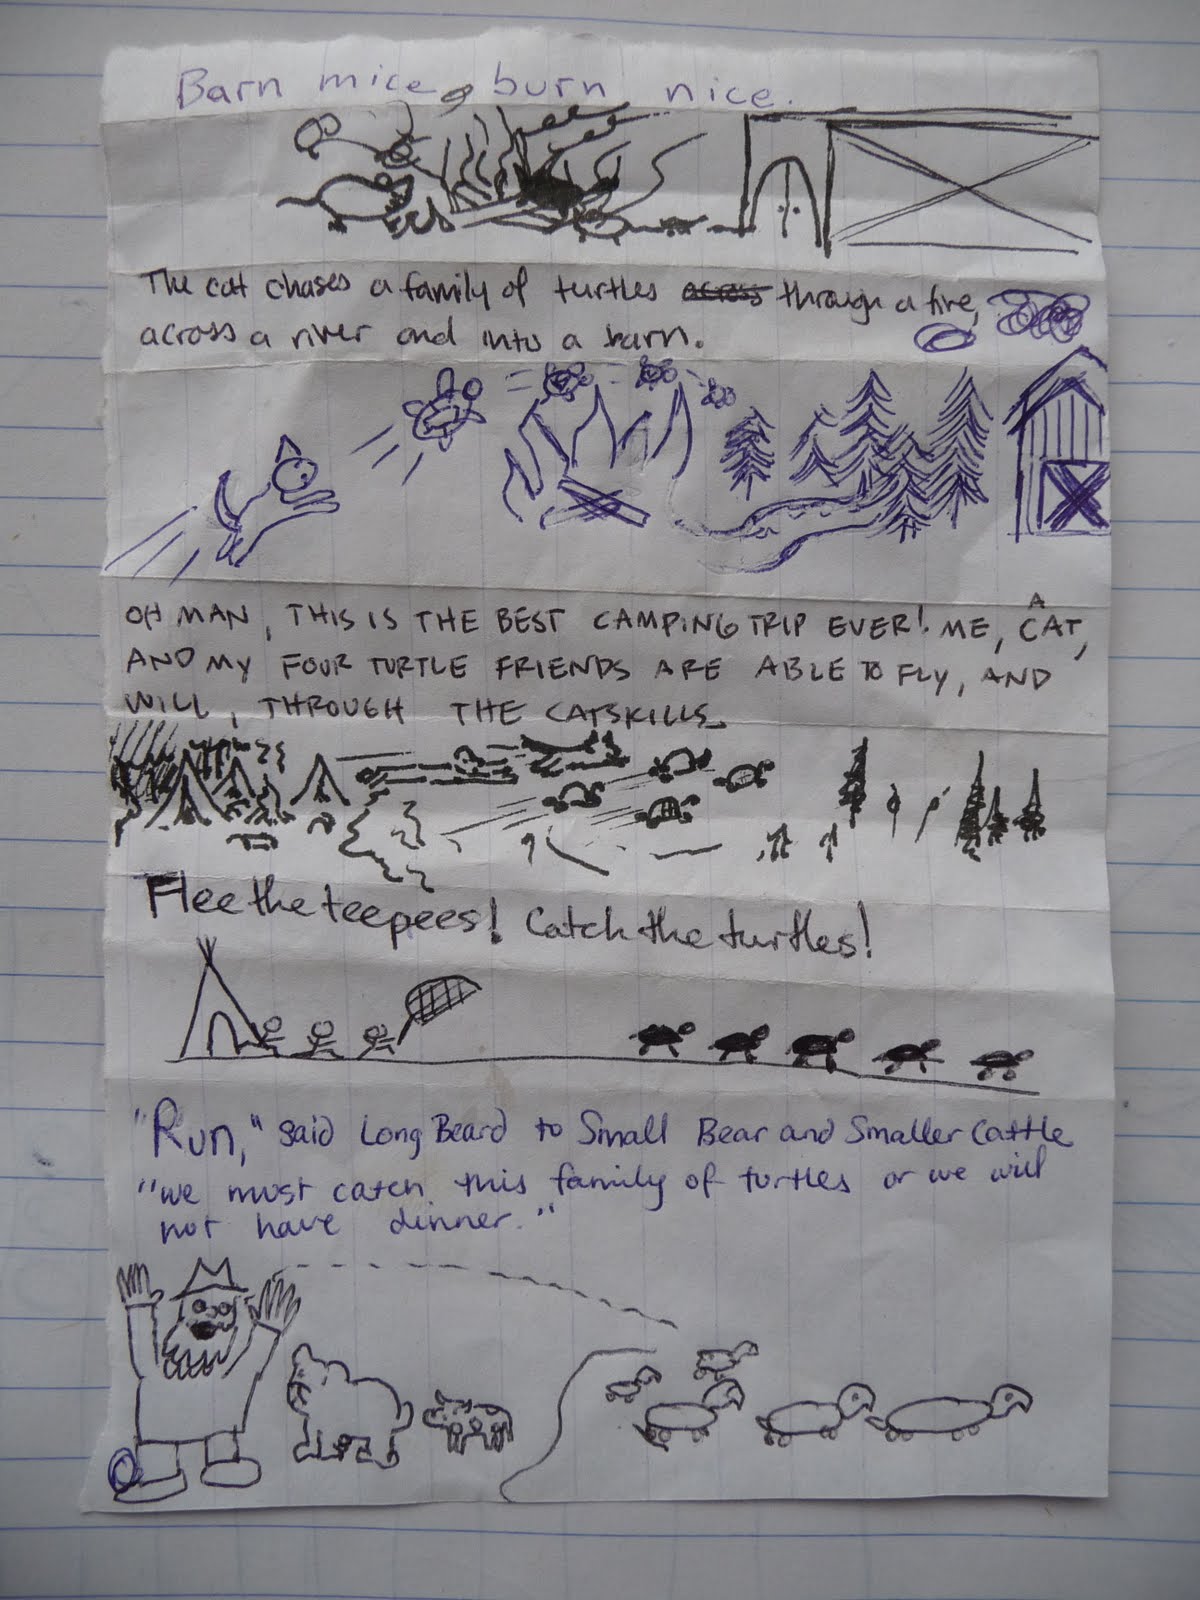 Barn mice, burn nice.
The cat chases a family of turtles across through a fire,
across a river and into a barn.
OH MAN, THIS IS THE BEST CAMPING TRIP EVER! ME, A CAT,
AND MY FOUR TURTLE FRIENDS ARE ABLE TO FLY, AND
WILL, THROUGH THE CATSKILLS.
Flee the teepees! Catch the turtles!
"Run," said Long Beard to Small Bear and Smaller Cattle
"we must catch this family of turtles or we will
not have dinner."